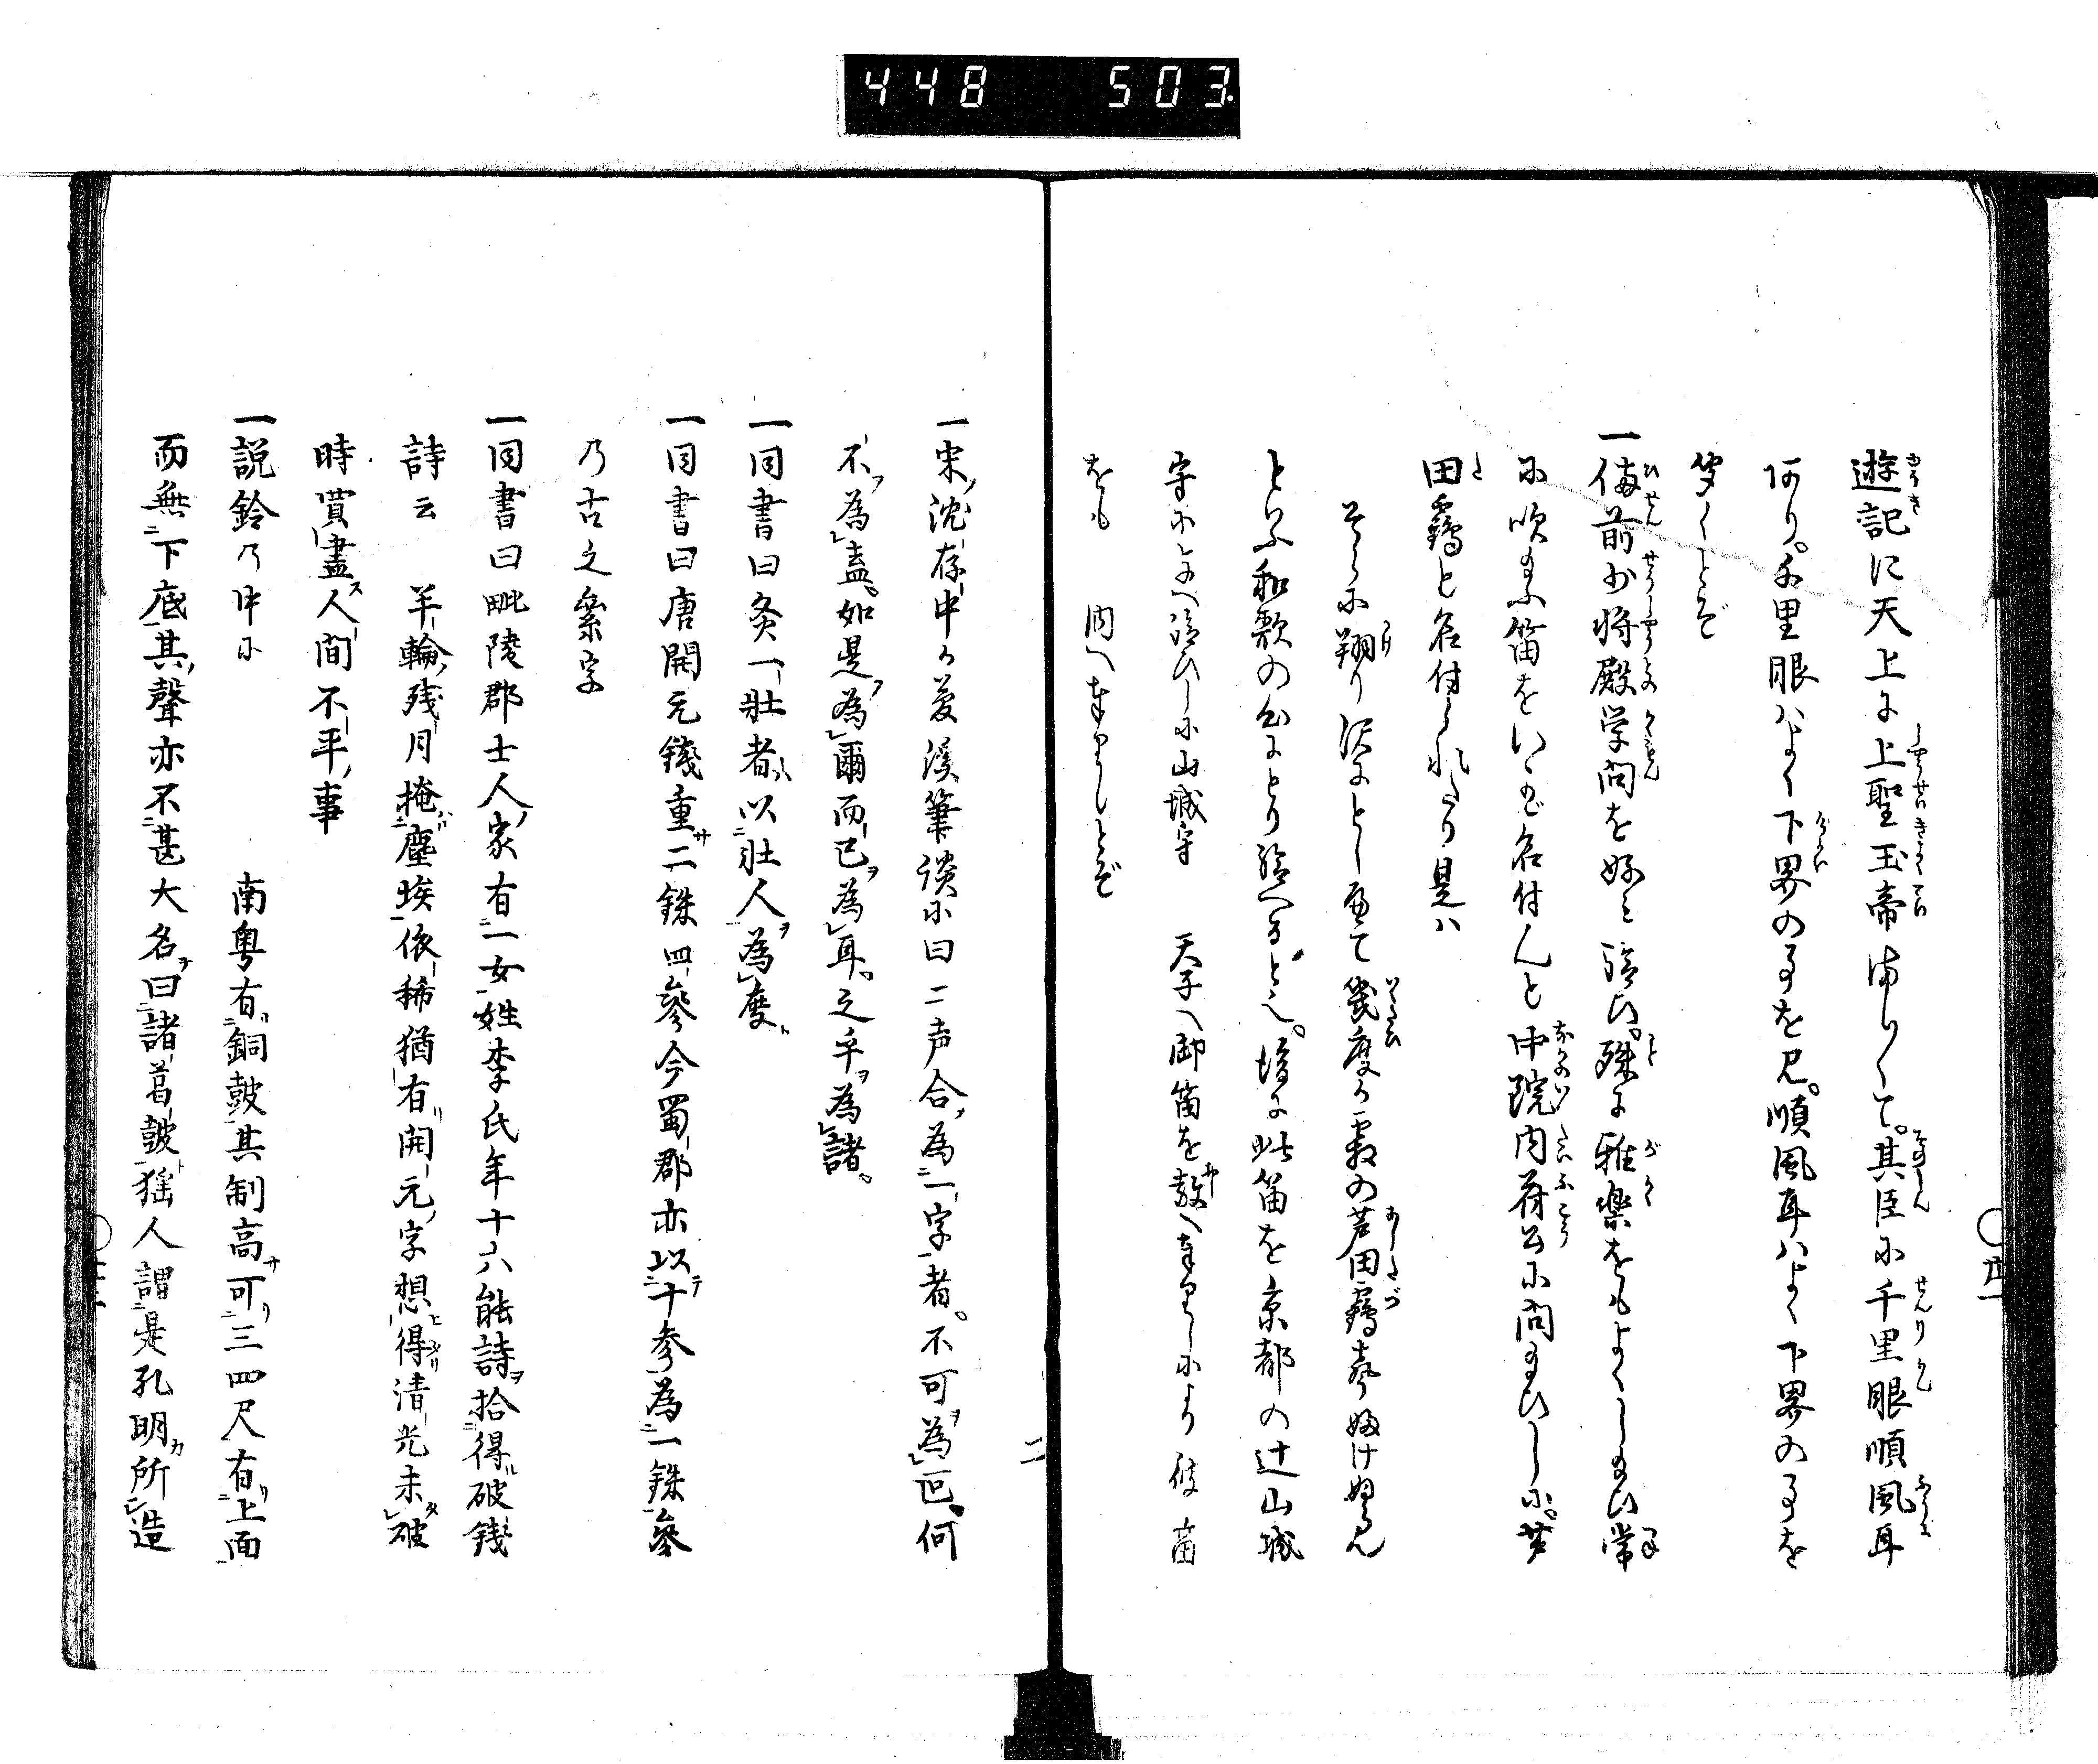 448 503
遊記に天上に上聖玉帝ましくて。其臣に千里眼順風耳
あり。千里眼はよく下界の事を見。順風耳はよく下界の事を
聞くとぞ
一備前少将殿学問を好み給ひ。殊に雅楽をもよくし給ひ常
に吹給ふ笛をいかゞ名付んと中院内府公に問給ひしに。芦
田鶴と名付られたり是は
そらに翔り沢に としへて幾度か霜の芦田鶴声ふけぬらん
といふ和歌の心にとり給へると也。後に此笛を京都の辻山城
守に与へ給ひしに山城守 天子へ御笛を教へ奉りしにより彼笛
をも 内へ奉りしとぞ
一宋沈存中か夢溪筆談に曰二声合為一字者。不可為叵。何
不為盍。如是為爾而已為耳。之乎為諸。
一同書曰灸一壮者以壮人為度
一同書曰唐開元錢重二銖四參今蜀郡亦以十参為一銖參
乃古之絫字
一同書曰毗陵郡士人家有一女姓李氏年十六能詩拾得破錢
詩云 半輪残月掩塵埃依稀猶有開元字想得清光未破
時買盡人間不平事
一説鈴乃中に 南粤有銅皷其制高可三四尺有上面
而無下底其聲亦不甚大名曰諸葛皷猺人謂是孔明所造